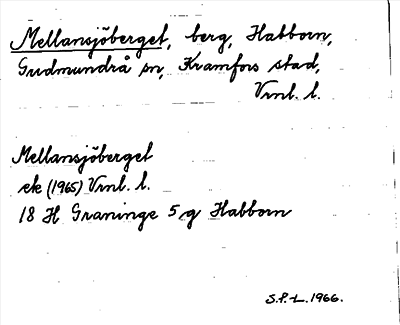 Mellansjöberget, berg, Habborn,
Gudmundrå sn, Kramfors stad,
Vrnl. l.
Mellansjöberget
ek (1965) Vrnl. l.
18 H Graninge 5 g Habborn
S.P.-L. 1966.